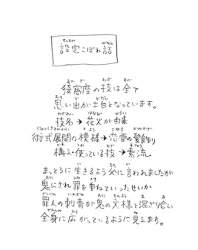 設定こぼれ話
猗窩座の技は全て
思い出が土台となっています。
技名→花火が由来
術式展開の模様→恋雪の髪飾り
構え・使っている技→素流
まっとうに生きるよう父に言われましたが
鬼にされ罪を重ねていったせいか
罪人の刺青が鬼の文様と溶け合い
全身に広がっているように見えます。